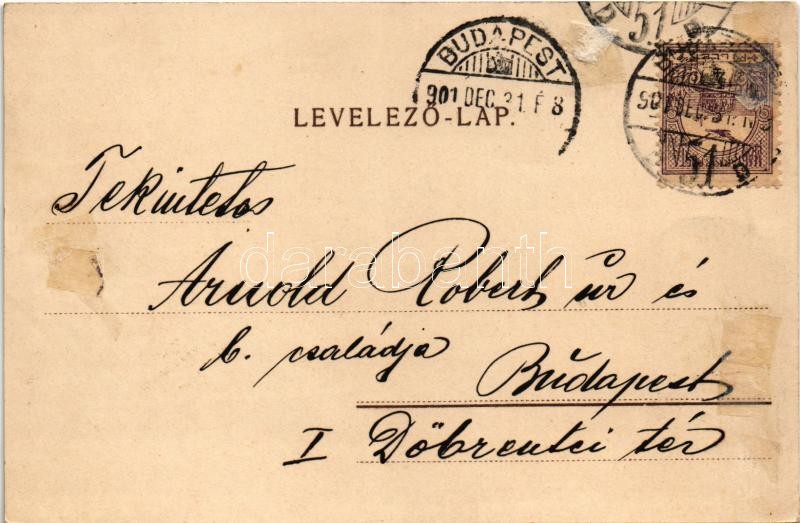 51
D
BUDAPEST
901 DEC. 31. F 8
901 DEC. 31. N
51
D
LEVELEZŐ-LAP.
Tekintetes
Arnold Robert úr és
b. családja
Budapest
I Döbrentei tér
darabanth